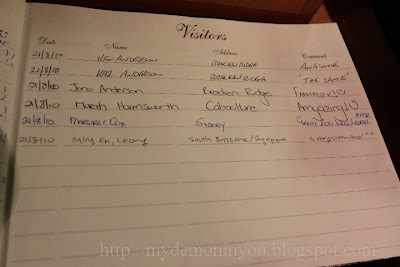 Visitors
Date Name Address Comments
21/8/10 VEV ANDERSON BRACKEN RIDGE AWESOME
21/8/10 VAL ANDERSON BRACKEN RIDGE THE SAME
21/8/10 Jono Anderson Bracken Ridge FANTASTIC!
21/8/10 Morgh Harmsworth Caboolture Amazing!
21/8/10 MARGARET COX SYDNEY
21/8/10 Ming En, Leong South Brisbane/Singapore
http://mydemoninyou.blogspot.com